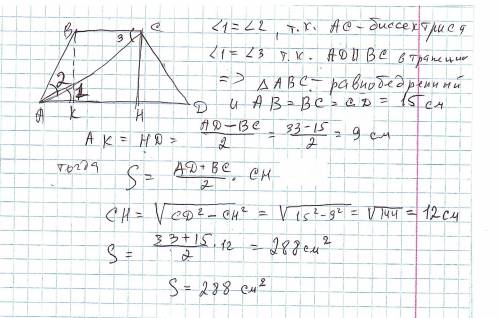 B C ∠1=∠2, т.к. AC - биссектриса
3 ∠1=∠3 т.к. AD∥BC в трапеции
2 1 => △ABC - равнобедренный
A K H D и AB = BC = CD = 15 см
AK = HD = (AD-BC)/2 = (33-15)/2 = 9 см
тогда S = (AD+BC)/2 · CH
CH = √(CD²-CH²) = √(15²-9²) = √144 = 12 см
S = (33+15)/2 · 12 = 288 см²
S = 288 см²